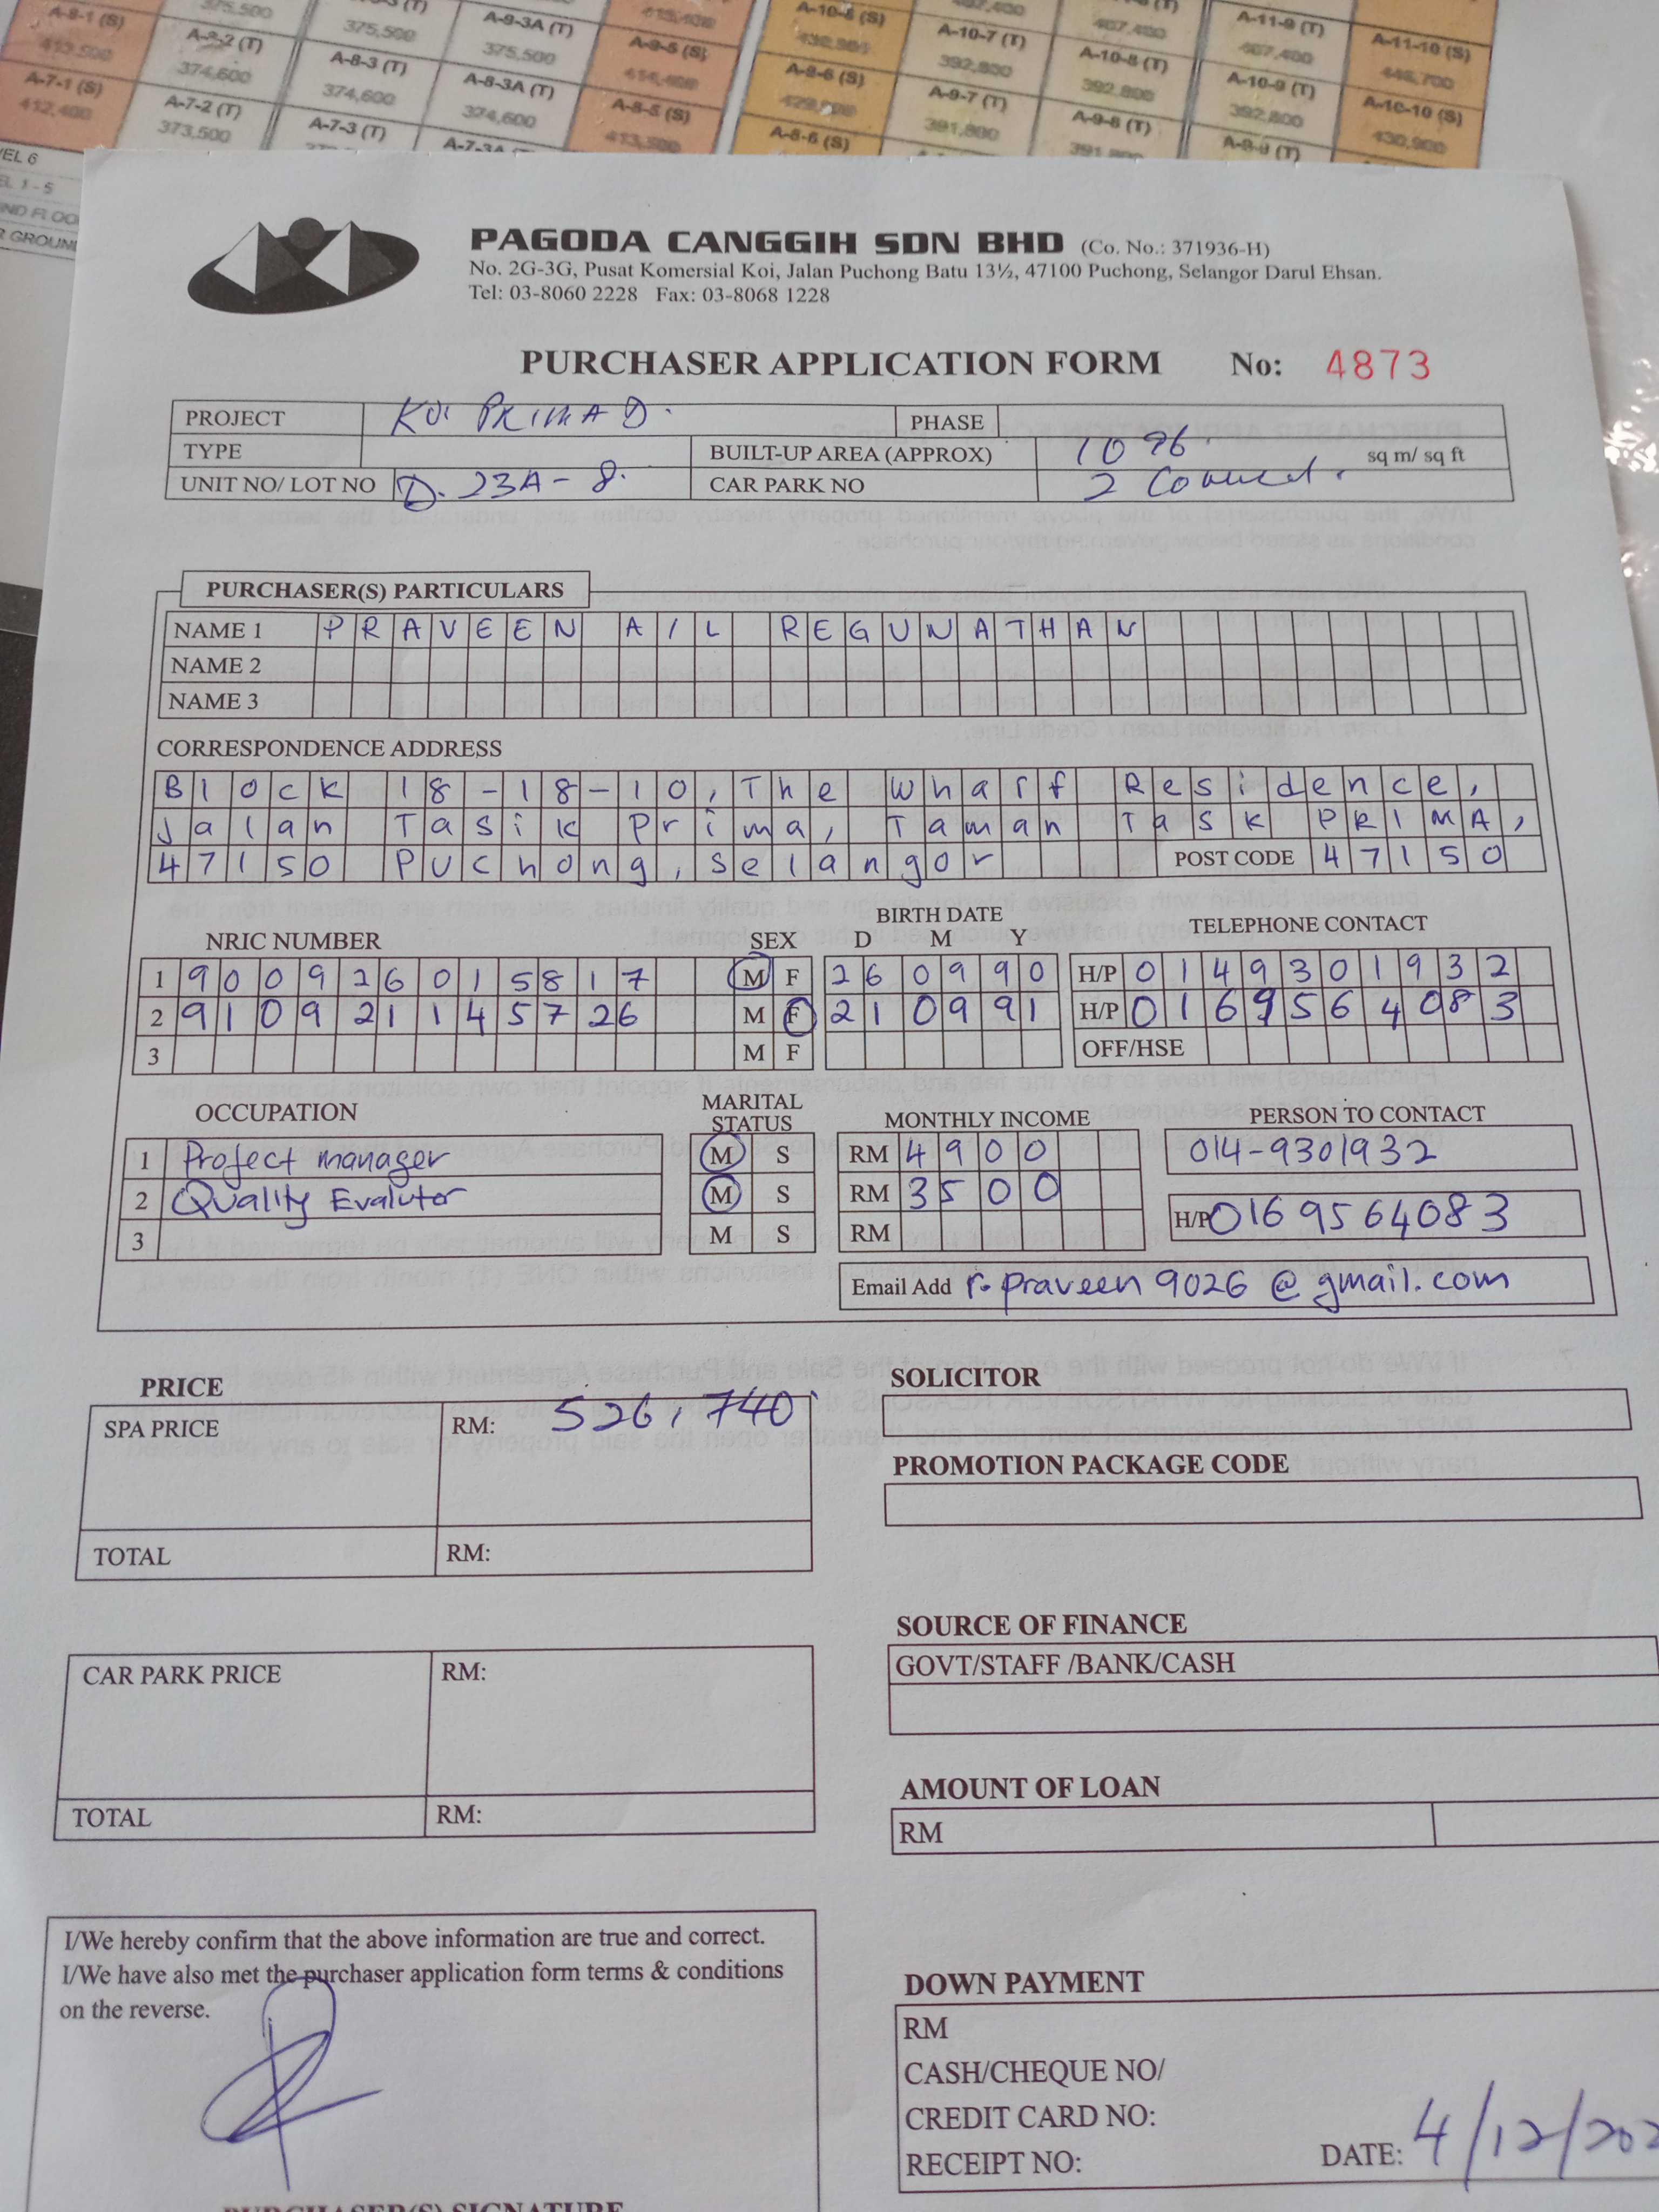 A-8-1 (S) 375,500 A-9-3A (T) A-10-7 (T) 407,400 A-11-9 (T) A-11-10 (S)
413,500 A-8-2 (T) 375,500 375,500 A-9-5 (S) 392,800 A-10-8 (T) 407,400 446,700
A-7-1 (S) 374,600 A-8-3 (T) A-8-3A (T) 414,400 A-9-6 (S) A-9-7 (T) 392,800 A-10-9 (T) A-10-10 (S)
412,400 A-7-2 (T) 374,600 374,600 A-8-5 (S) 391,800 A-9-8 (T) 392,800 430,900
373,500 A-7-3 (T) 413,500 A-8-6 (S)
PAGODA CANGGIH SDN BHD (Co. No.: 371936-H)
No. 2G-3G, Pusat Komersial Koi, Jalan Puchong Batu 13½, 47100 Puchong, Selangor Darul Ehsan.
Tel: 03-8060 2228 Fax: 03-8068 1228
PURCHASER APPLICATION FORM No: 4873
PROJECT KOI PRIMA D. PHASE
TYPE BUILT-UP AREA (APPROX) 1096. sq m/ sq ft
UNIT NO/ LOT NO D. 23A - 8. CAR PARK NO 2 Covered.
PURCHASER(S) PARTICULARS
NAME 1 PRAVEEN A/L REGUNATHAN
NAME 2
NAME 3
CORRESPONDENCE ADDRESS
Block 18-18-10, The Wharf Residence,
Jalan Tasik Prima, Taman Task PRIMA,
47150 Puchong, Selangor POST CODE 47150
NRIC NUMBER SEX BIRTH DATE TELEPHONE CONTACT
D M Y
1 900926015817 M F 260990 H/P 0149301932
2 910921145726 M F 210991 H/P 0169564083
3 M F OFF/HSE
OCCUPATION MARITAL STATUS MONTHLY INCOME PERSON TO CONTACT
1 Project manager M S RM 4900 014-9301932
2 Quality Evalutor M S RM 3500 H/P 0169564083
3 M S RM
Email Add r.praveen9026@gmail.com
PRICE SOLICITOR
SPA PRICE RM: 526,740
PROMOTION PACKAGE CODE
TOTAL RM:
SOURCE OF FINANCE
CAR PARK PRICE RM: GOVT/STAFF /BANK/CASH
AMOUNT OF LOAN
TOTAL RM: RM
I/We hereby confirm that the above information are true and correct.
I/We have also met the purchaser application form terms & conditions
on the reverse.
DOWN PAYMENT
RM
CASH/CHEQUE NO/
CREDIT CARD NO:
RECEIPT NO: DATE: 4/12/202
PURCHASER(S) SIGNATURE